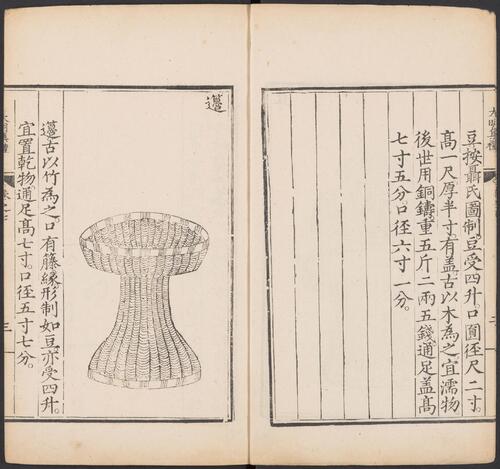 豆按聶氏圖制。豆受四升。口圓徑尺二寸。
高一尺厚半寸。有盖。古以木為之。宜濡物
後世用銅鑄。重五斤二兩五錢。通足盖高
七寸五分。口径六寸一分。
籩
籩古以竹為之。口有籐緣。形制如豆。亦受四升。
宜置乾物。通足高七寸。口径五寸七分。
三